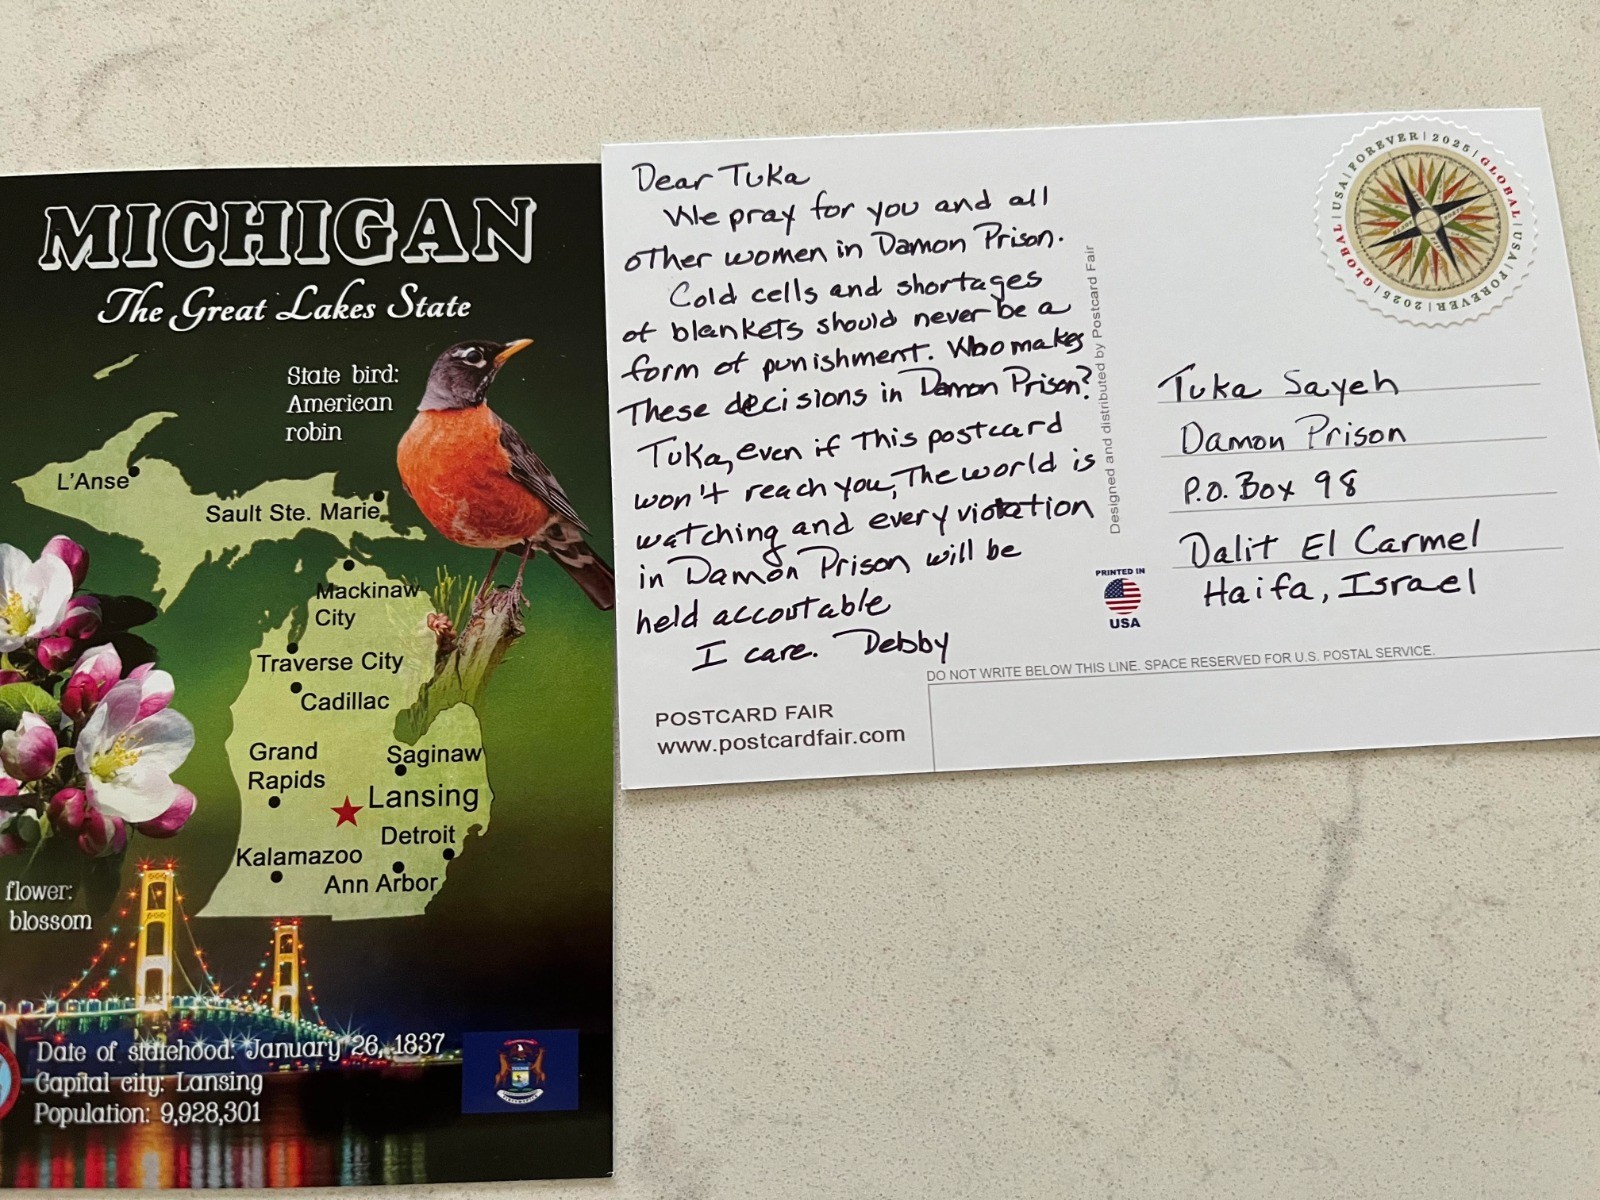 MICHIGAN
The Great Lakes State
State bird:
American
robin
L'Anse
Sault Ste. Marie
Mackinaw
City
Traverse City
Cadillac
Grand
Rapids
Saginaw
Lansing
Detroit
Kalamazoo
Ann Arbor
flower:
blossom
Date of statehood: January 26, 1837
Capital city: Lansing
Population: 9,928,301
Dear Tuka
We pray for you and all
other women in Damon Prison.
Cold cells and shortages
of blankets should never be a
form of punishment. Who makes
These decisions in Damon Prison?
Tuka, even if this postcard
won't reach you, The world is
watching and every violation
in Damon Prison will be
held accoutable
I care. Debby
POSTCARD FAIR
www.postcardfair.com
Designed and distributed by Postcard Fair
PRINTED IN
USA
GLOBAL | USA | FOREVER | 2025 | GLOBAL | USA | FOREVER | 2025
Tuka Sayeh
Damon Prison
P.O. Box 98
Dalit El Carmel
Haifa, Israel
DO NOT WRITE BELOW THIS LINE. SPACE RESERVED FOR U.S. POSTAL SERVICE.